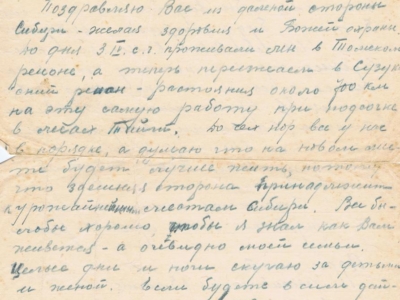 Поздравляю Вас из далекой стороны
Сибири - желая здоровия и Божей охраны
До дня 3 IV. с.г. проживали мы в Томском
районе, а теперь переезжаем в Сузун
ский район - растояния около 400 км
на эту самую работу при подсочке
в лесах Тайги. До сех пор все у нас
в порядке, а думаю что на новом мес
те будет лучше жить, потому
что здешняя сторона принадлежит
к урожайным местам Сибири. Все бы-
ло бы хорошо чтобы я знал как Вам
живется - а очевидно моей семьи.
Целые дни и ночи скучаю за детьми
и женой. Если будете в силе дай-